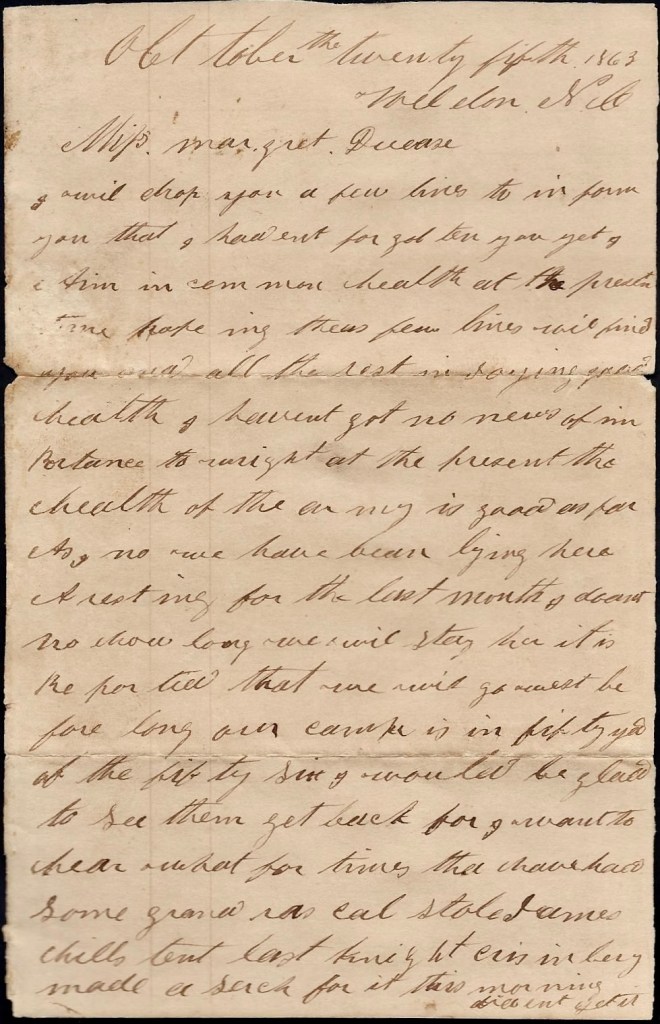 Oct tober the twenty fifth 1863
Weldon N C
Miss. mar.gret. Ducase
I wil drop you a few lines to in form
you that I had ent for got ten you yet I
Aim in com mon health at the present
Time hope ing theas few lines wil find
you and all the rest in Joying good
health I havent got no news of im
Portance to wright at the present the
health of the ar my is good as far
As I no we have bean lying here
A rest ing for the last month I doant
no how long we wil stay her it is
Re por ted that we wil go west be
fore long our camp is in fifty yd
of the fif ty six I would be glad
to see them get back for I want to
hear what for times tha have had
Some grand ras cal stole James
hills tent last knight cris in bery
made a serch for it this morning
did ent get it